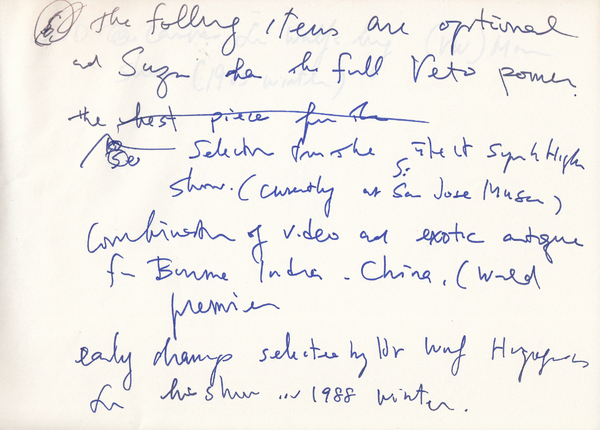 the follwng items are optional
ad Suzn has the full Veto power.
the best piece for the
Selection from the Sythe High
show. (Currently at San Jose Museum)
Combination of video ad exotic antique
fr Burma India - China. (World
premier
early drawings selected by Dr Wulf
for his show in 1988 winter.